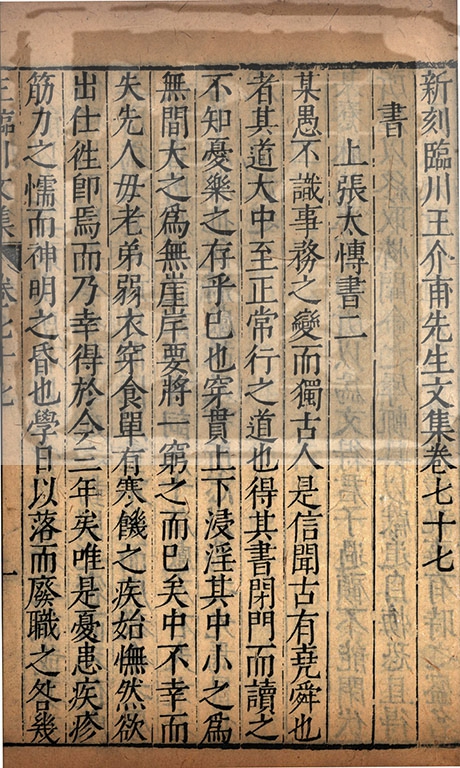 新刻臨川王介甫先生文集卷七十七
書
上張太愽書二
某愚不識事務之變而獨古人是信聞古有堯舜也
者其道大中至正常行之道也得其書閉門而讀之
不知憂樂之存乎已也穿貫上下浸淫其中小之為
無間大之為無崖岸要將一窮之而已矣中不幸而
失先人母老弟弱衣穿食單有寒饑之疾始憮然欲
出仕徃即焉而乃幸得於今三年矣唯是憂患疾疹
筋力之懦而神明之昏也學日以落而廢職之咎幾
王臨川文集 卷七十七 一